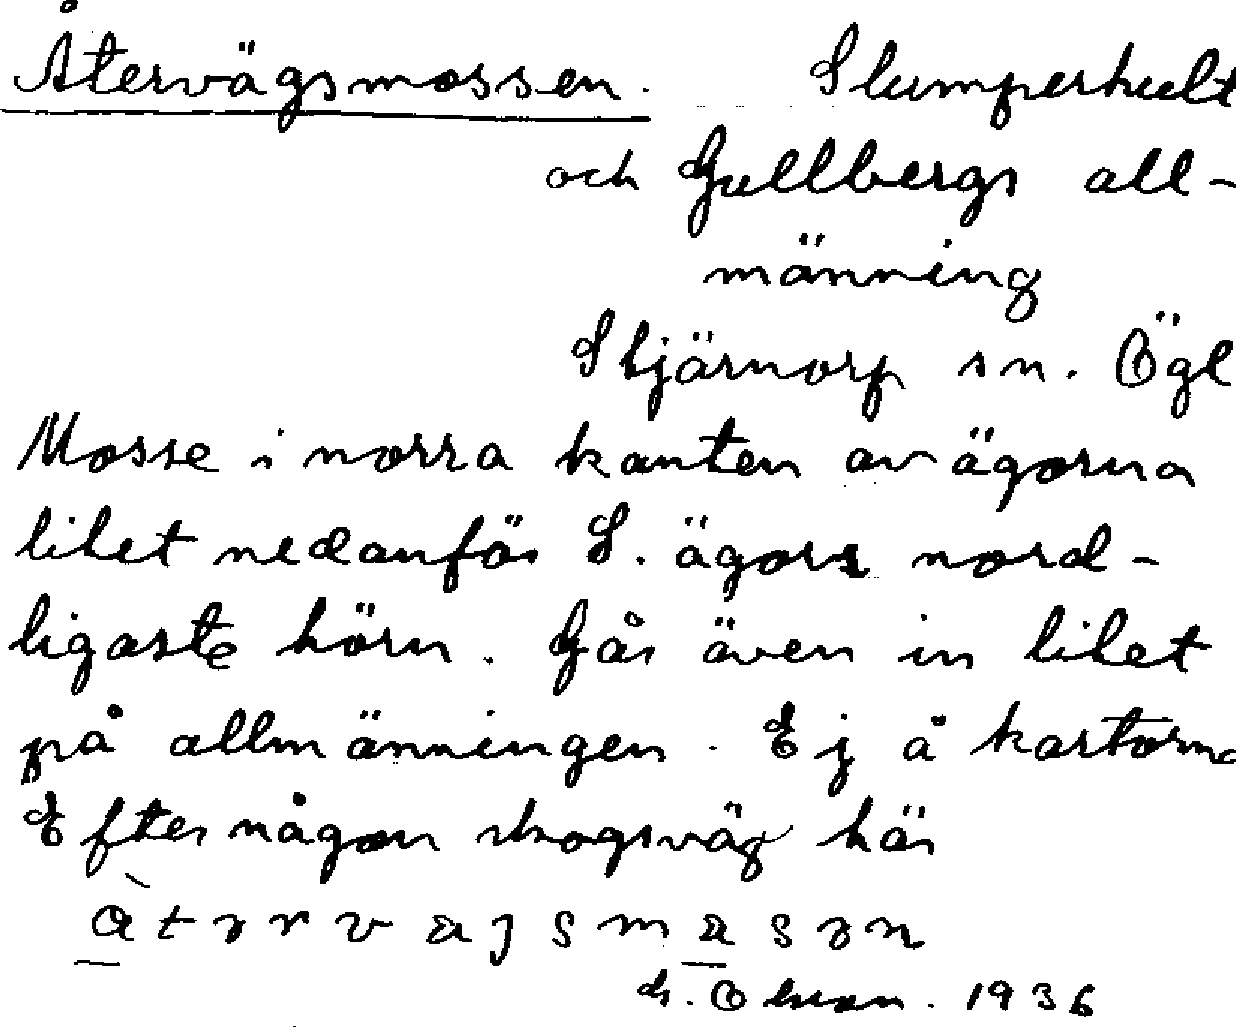 Återvägsmossen. Slumperhult
och Gullbergs all-
männing
Stjärnorp sn. Ögl
Mosse i norra kanten av ägorna
litet nedanför S. ägors nord-
ligaste hörn. Går även in litet
på allmänningen. Ej å kartorna
Efter någon skogsväg här
1936